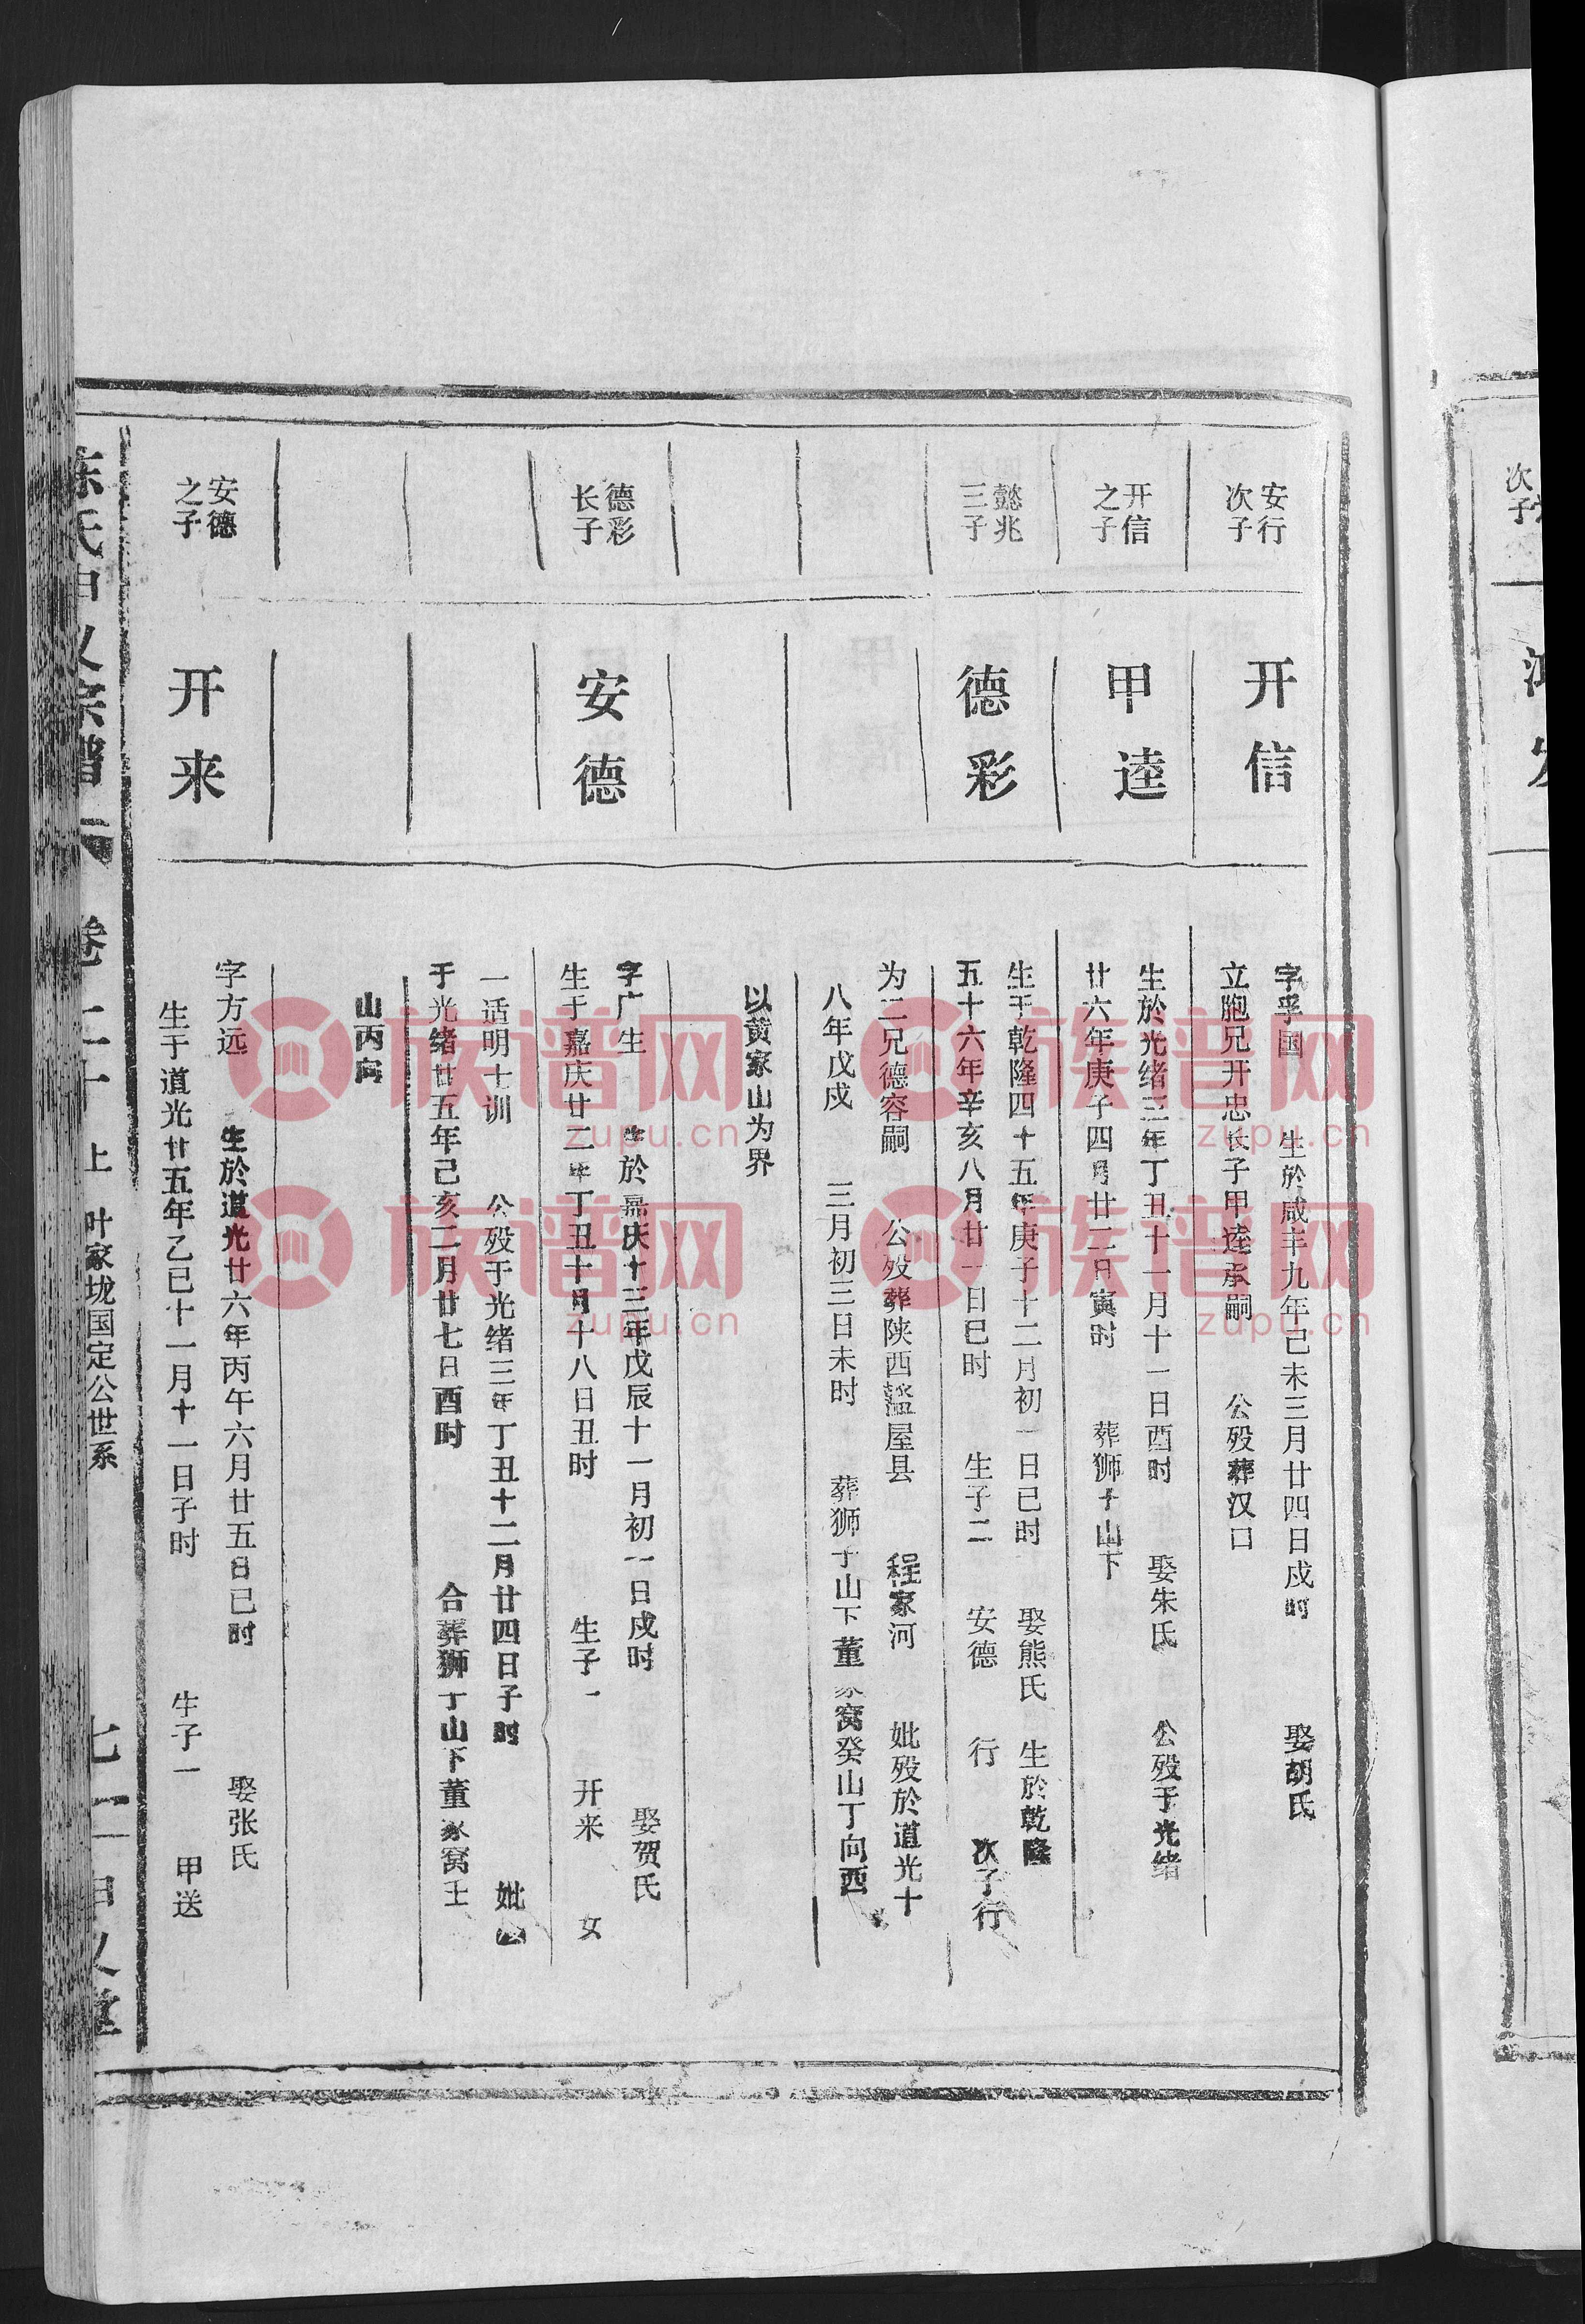 安行
次子
开信
字孚国 生於咸丰九年己未三月廿四日戌时 娶胡氏
立胞兄开忠长子甲逵承嗣 公殁葬汉口
开信
之子
甲逵
生於光绪三年丁丑十一月十一日酉时 娶朱氏 公殁于光绪
廿六年庚子四月廿二日寅时 葬狮子山下
懿兆
三子
德彩
生于乾隆四十五年庚子十二月初一日巳时 娶熊氏 生於乾隆
五十六年辛亥八月廿一日巳时 生子二 安德 行 次子行
为二兄德容嗣 公殁葬陕西盩屋县 程家河 妣殁於道光十
八年戊戌 三月初三日未时 葬狮子山下董家窝癸山丁向西
以黄家山为界
德彩
长子
安德
字广生 生於嘉庆十三年戊辰十一月初一日戌时 娶贺氏
生于嘉庆廿二年丁丑十月十八日丑时 生子一 开来 女
一适明士训 公殁于光绪三年丁丑十二月廿四日子时 妣殁
于光绪廿五年己亥二月廿七日酉时 合葬狮子山下董家窝壬
山丙向
安德
之子
开来
字方远 生於道光廿六年丙午六月廿五日巳时 娶张氏
生于道光廿五年乙巳十一月十一日子时 生子一 甲送
陈氏申义宗谱 卷二十 上 叶家垅国定公世系 七一 申义堂
次子
族谱网
zupu.cn
族谱网
zupu.cn
族谱网
zupu.cn
族谱网
zupu.cn